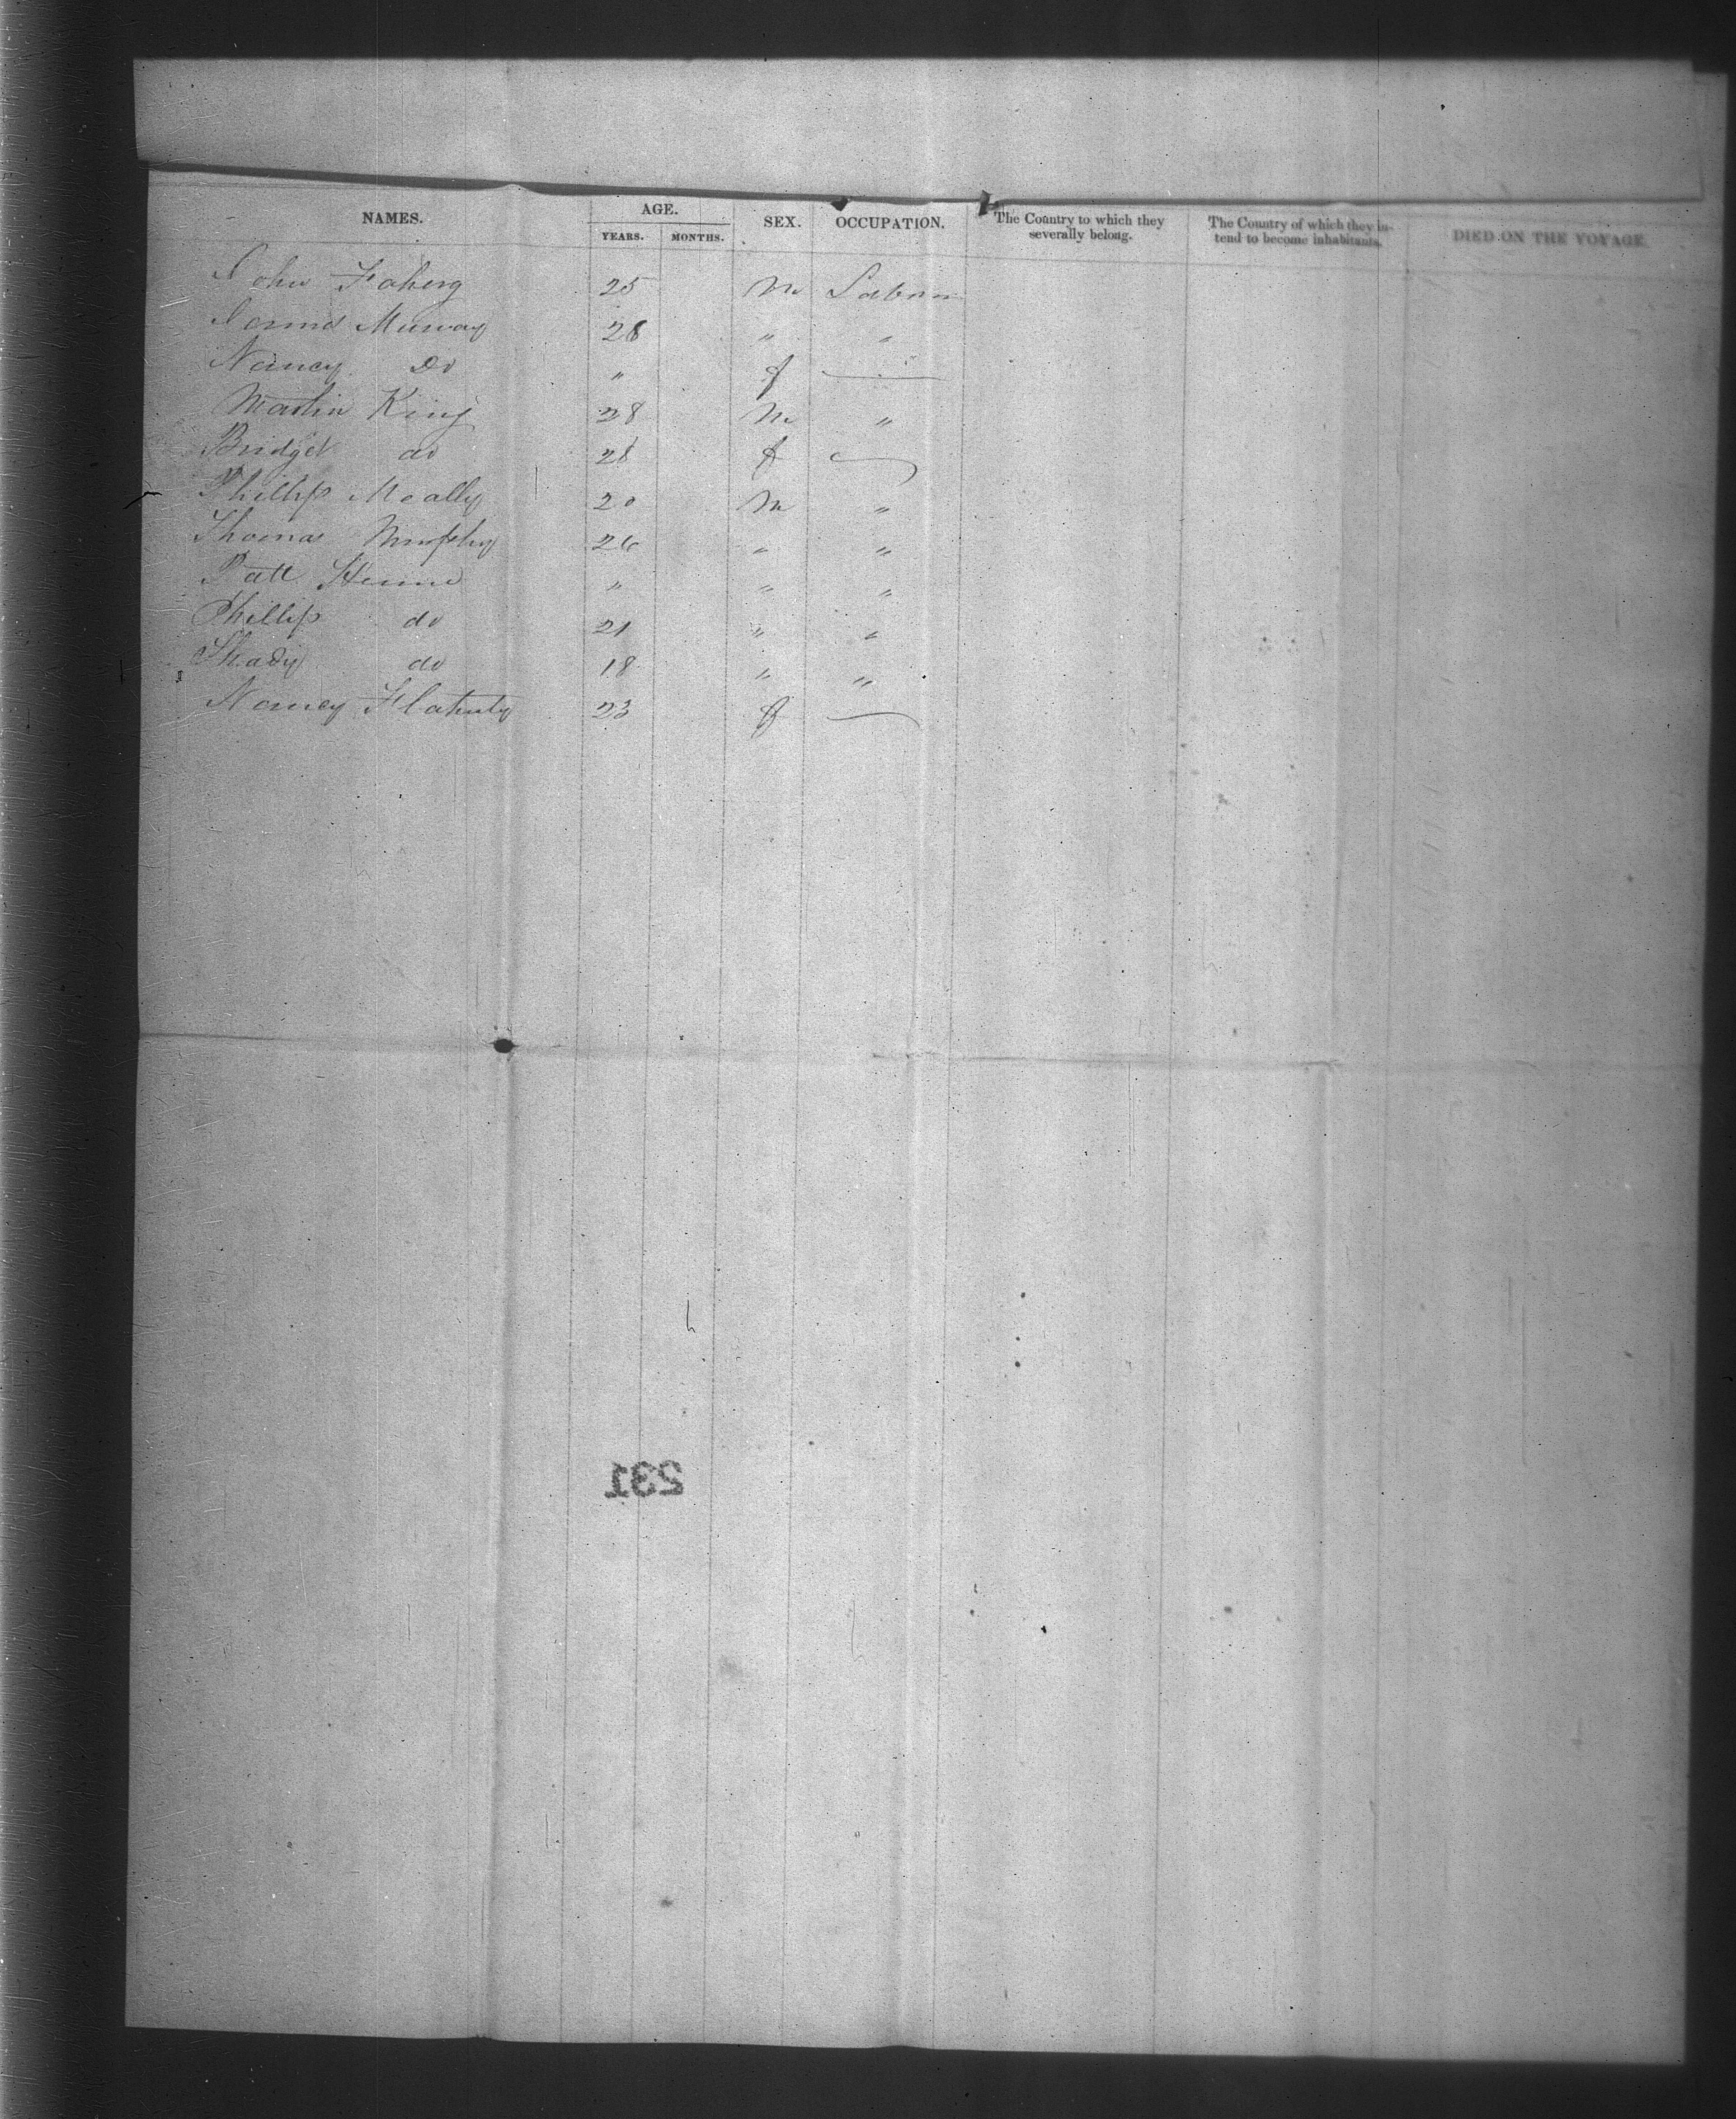 NAMES. AGE. SEX. OCCUPATION. The Country to which they severally belong. The Country of which they intend to become inhabitants. DIED ON THE VOYAGE.
YEARS. MONTHS.
John Faherg 25 M Labour
Murray 28 " "
Nancy Do " f
Martin King 28 M "
Bridget do 28 f
Phillip Meally 20 M "
Thomas Murphy 26 " "
Patt " " "
Phillip do 21 " "
Thady do 18 " "
Nancy Flaherty 23 f
231